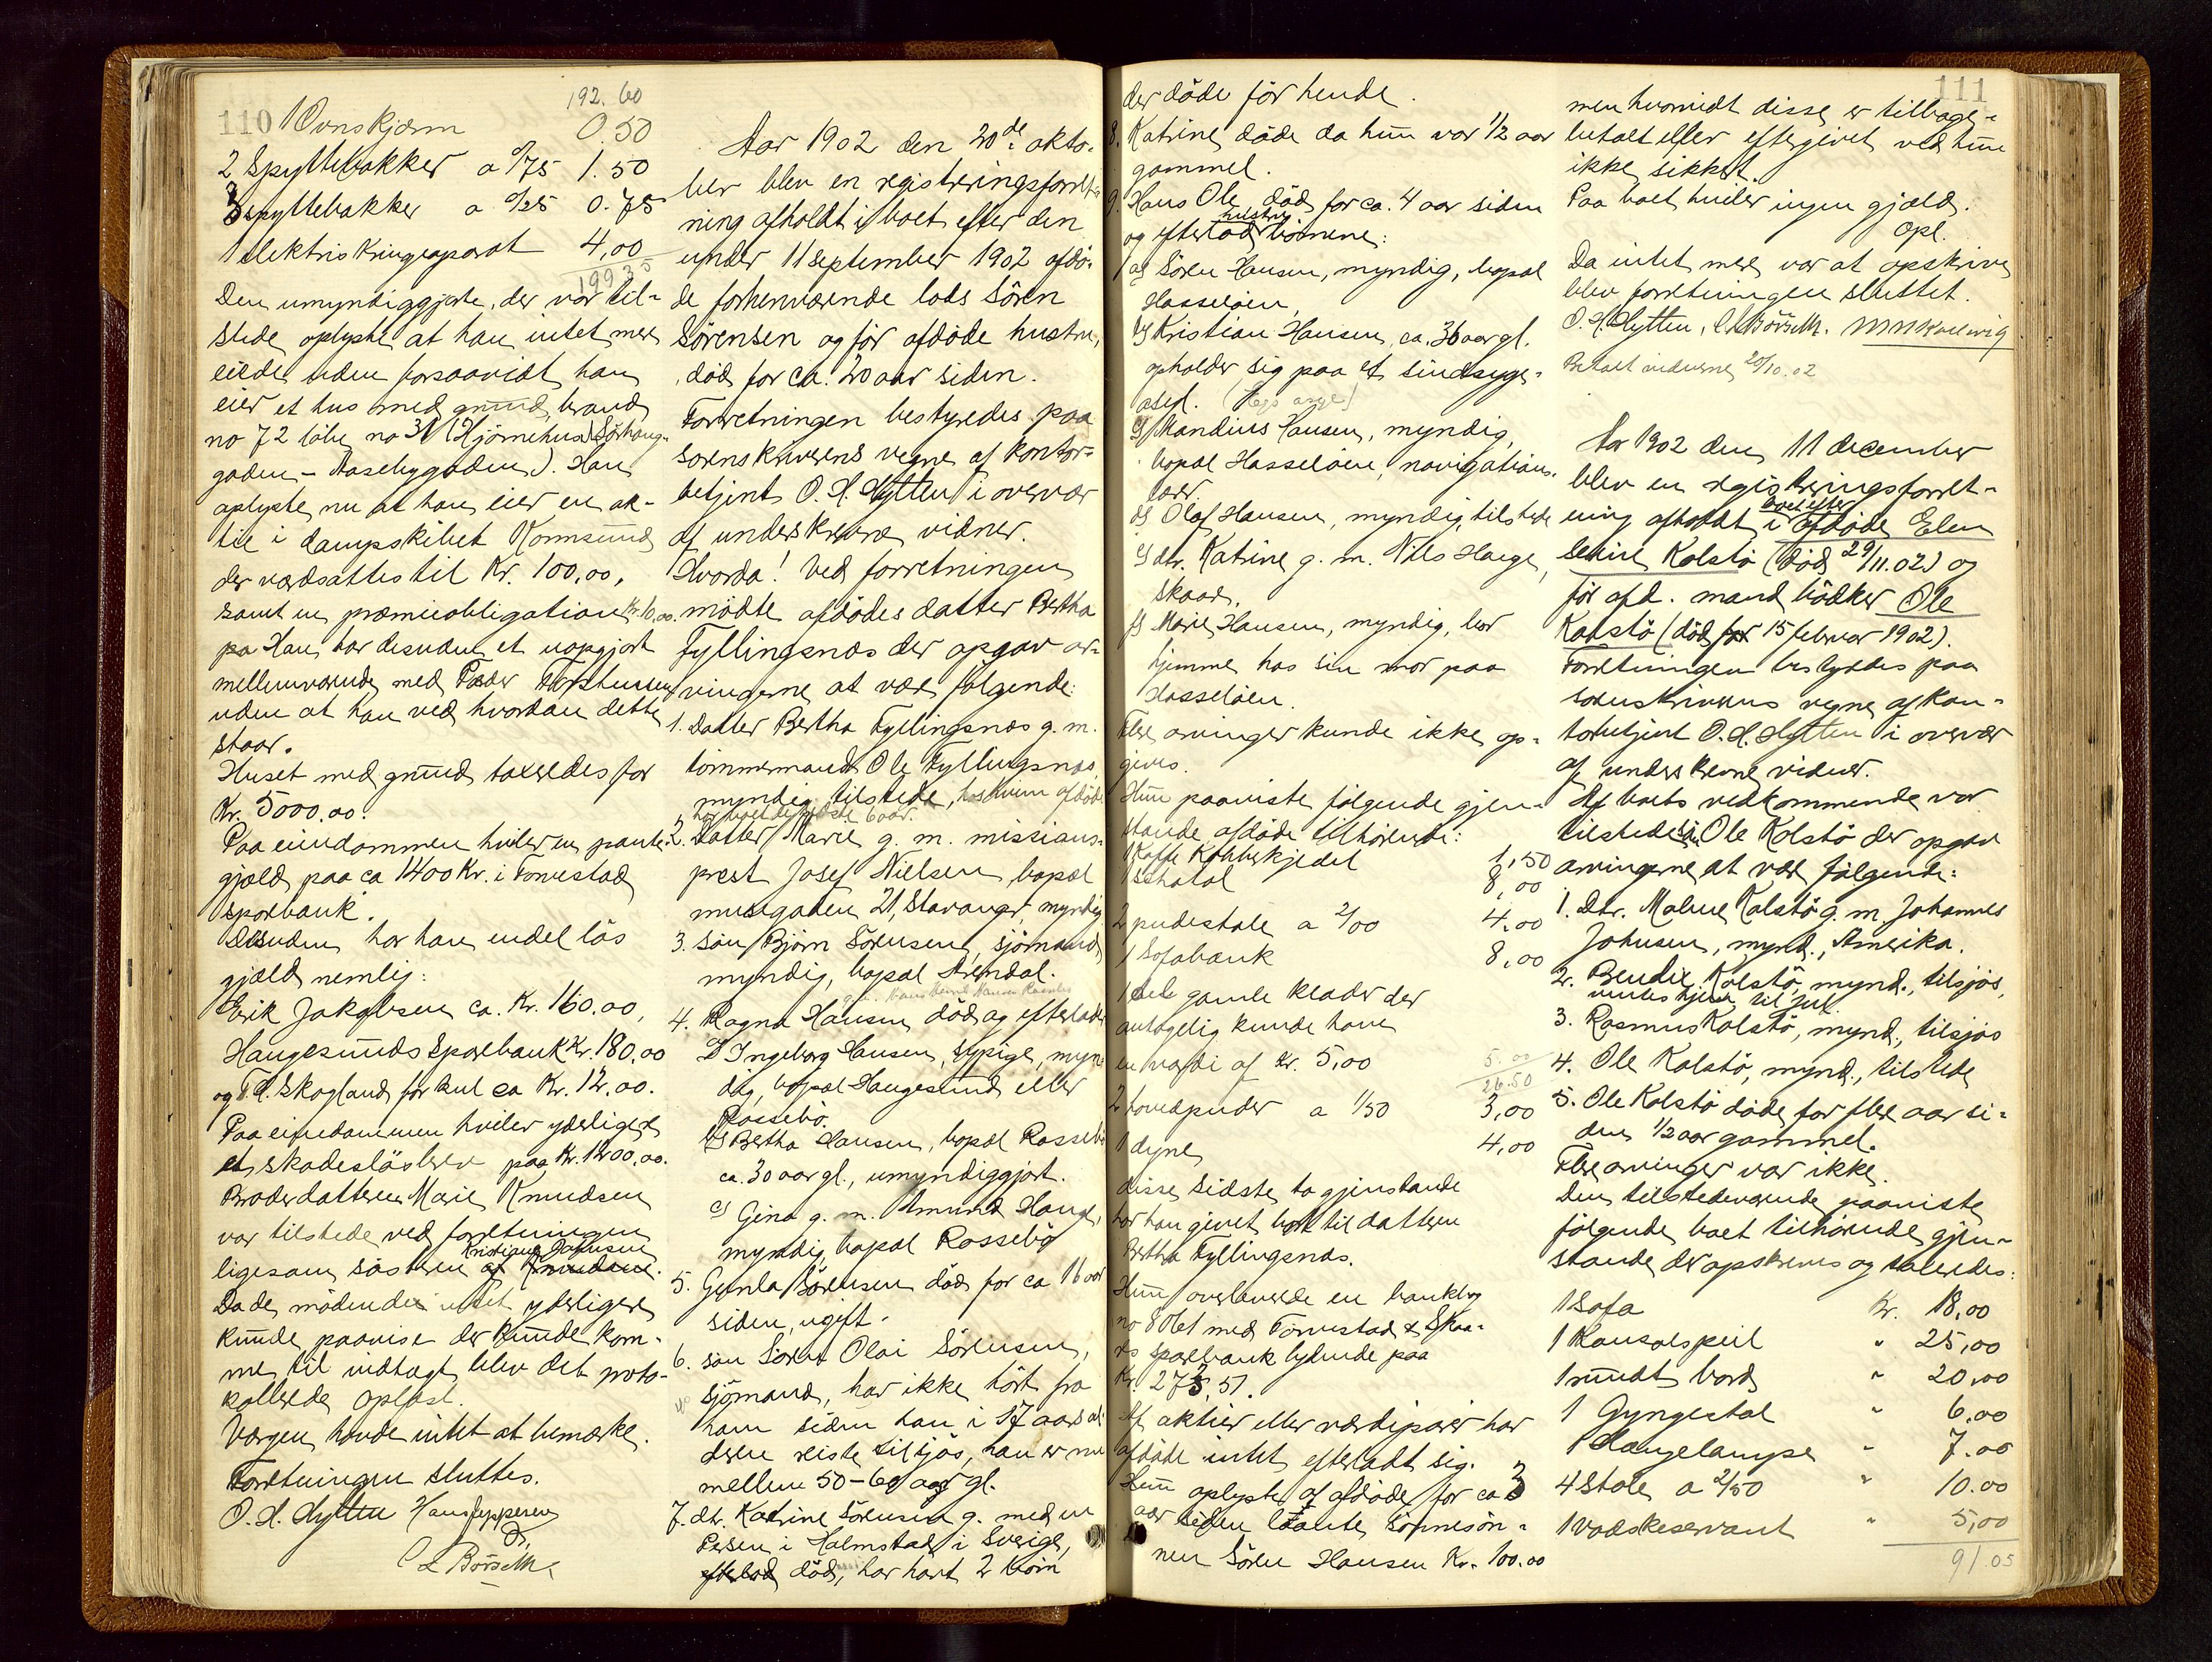 110
192.60
1 Ovnskjærm 0.50
2 Spyttebakker a 0/75 1.50
3 spyttebakker a 0/25 0.75
1 elektrisk ringeapparat 4,00
199.35
Den umyndiggjorte, der var til-
stede oplyste at han intet mere
eiede uden forsaavidt han
eier et hus med grund, brand
no 72 löbe no 31 (Hjörnehus Sörhaug-
gaden - Aasebygaden). Han
oplyste nu at han eier en ak-
tie i dampskibet Karmsund
der værdsattes til Kr. 100,00,
samt en præmieobligation Kr. 10,00.
Han har desuden et uopgjort
mellemværende med Peder
uden at han ved hvordan dette
staar.
Huset med grund taxeredes for
Kr. 5000.00.
Paa eiendommen hviler en pante-
gjæld paa ca 1400 Kr. i Torvestad
sparebank.
Desuden har han endel lös
gjæld nemlig:
Erik Jakobsen ca. Kr. 160.00,
Haugesunds Sparebank Kr. 180.00
og T. A. Skogland for kul ca Kr. 12.00.
Paa eiendommen hviler yderligere
et skadeslösbrev paa Kr. 1200,00.
Broderdatteren Marie Knudsen
var tilstede ved forretningen
Kristiane Johnsen
ligesom sösteren af Knudsen.
Da de mödende intet yderligere
kunde paavise der kunde kom-
me til indtægt blev det proto-
kollerede oplæst.
Værgen havde intet at bemærke.
Forretningen sluttes.
O. H. Hytten Hans Jeppesen
L Börseth.
Aar 1902 den 20de okto-
ber blev en registreringsforret-
ning afholdt i boet efter den
under 11 september 1902 afdö-
de forhenværende lods Sören
Sörensen og för afdöde hustru,
död for ca. 20 aar siden.
Forretningen bestyredes paa
sorenskriverens vegne af kontor-
betjent O. H. Hytten i overvær
af underskrevne vidner.
Hvorda! Ved forretningen
mödte afdödes datter Bertha
Fyllingsnæs der opgav ar-
vingerne at være fölgende:
1. Datter Bertha Fyllingsnæs g. m.
tömmermand Ole Fyllingsnæs,
myndig tilstede, hos hvem afdöde
har boet de sidste 6 aar.
2. Datter Marie g. m. missions-
prest Josef Nielsen, bopæl
musegaden 21, Stavanger, myndig
3. sön Björn Sörensen, sjömand,
myndig, bopæl Arendal.
4. Ragna Hansen död og efterlader
a) Ingeborg Hansen, sypige, myn-
dig, bopæl Haugesund eller
Rossebö.
b) Bertha Hansen, bopæl Rossebö
ca. 30 aar gl., umyndiggjort.
c) Gina g. m. Amund Hauge,
myndig, bopæl Rossebö
5. Gunla Sörensen död for ca 16 aar
siden, ugift.
6. sön Sören Olai Sörensen,
sjömand, har ikke hört fra
ham siden han i 17 aars al-
deren reiste tilsjös, han er nu
mellem 50-60 aar gl.
7. dtr. Katrine Sörensen g. med en
i Halmstad i Sverige,
efterlod död, har havt 2 börn
111
der döde för hende.
8. Katrine döde da hun var 1/2 aar
gammel.
9. Hans Ole död for ca. 4 aar siden
hustru
og efterlod börnene:
a) Sören Hansen, myndig, bopæl
Hasselöen,
b) Kristian Hansen, ca. 36 aar gl.
opholder sig paa et sindsyge-
asyl.
c) Mandius Hansen, myndig,
bopæl Hasselöen, navigations-
lærer.
d) Olaf Hansen, myndig, tilstede
e) dtr. Katrine g. m. Nils Hauge,
Skaar.
f) Marie Hansen, myndig, bor
hjemme hos sin mor paa
Hasselöen.
Flere arvinger kunde ikke op-
gives.
Hun paaviste fölgende gjen-
stande afdöde tilhörende:
1 Kaffe Kobberkjedel 1,50
1 Schatol 8,00
2 pudestole a 2/00 4.00
1 Sofabænk 8,00
1 del gamle klæder der
antagelig kunde have
en værdi af Kr. 5,00 5.00
26.50
2 hovedpuder a 1/50 3,00
1 dyne 4,00
disse sidste to gjenstande
har han givet bort til datteren
Bertha Fyllingsnæs.
Hun overleverede en bankbog
no med Torvestad & Skaa-
res sparebank lydende paa
Kr. 273,51.
Af aktier eller værdipapir har
afdöde intet efterladt sig.
Hun oplyste at afdöde for ca 3
aar siden laante sönnesön-
nen Sören Hansen Kr. 100.00
men hvorvidt disse er tilbage-
betalt eller eftergivet ved hun
ikke sikkert.
Paa boet hviler ingen gjæld.
Opl.
Da intet mere var at opskrive
blev forretningen sluttet.
O. H. Hytten, L. Börseth.
Betalt vidnerne 20/10.02
Aar 1902 den 11 december
blev en registreringsforret-
boet efter
ning afholdt i afdöde Elen
Serine Kolstö (död 29/11.02) og
för afd. mand bödker Ole
Kolstö (död for 15 februar 1902).
Forretningen bestyredes paa
sorenskriverens vegne af kon-
torbetjent O. H. Hytten i overvær
af underskrevne vidner.
Af boets vedkommende var
tilstede sön Ole Kolstö der opgav
arvingerne at være fölgende:
1. Dtr. Malene Kolstö g. m. Johannes
Johnsen, mynd., Amerika.
2. Bendix Kolstö, mynd., tilsjös,
ventes hjem til jul.
3. Rasmus Kolstö, mynd., tilsjös
4. Ole Kolstö, mynd., tilstede
5. Ole Kolstö döde for flere aar si-
den 1/2 aar gammel.
Flere arvinger var ikke.
Den tilstedeværende paaviste
fölgende boet tilhörende gjen-
stande der opskreves og taxeredes:
1 Sofa Kr. 18,00
1 Konsolspeil " 25,00
1 rundt bord " 20,00
1 Gyngestol " 6.00
1 Hængelampe " 7.00
4 Stole a 2/50 " 10.00
1 Vadskeservant " 5,00
91.05